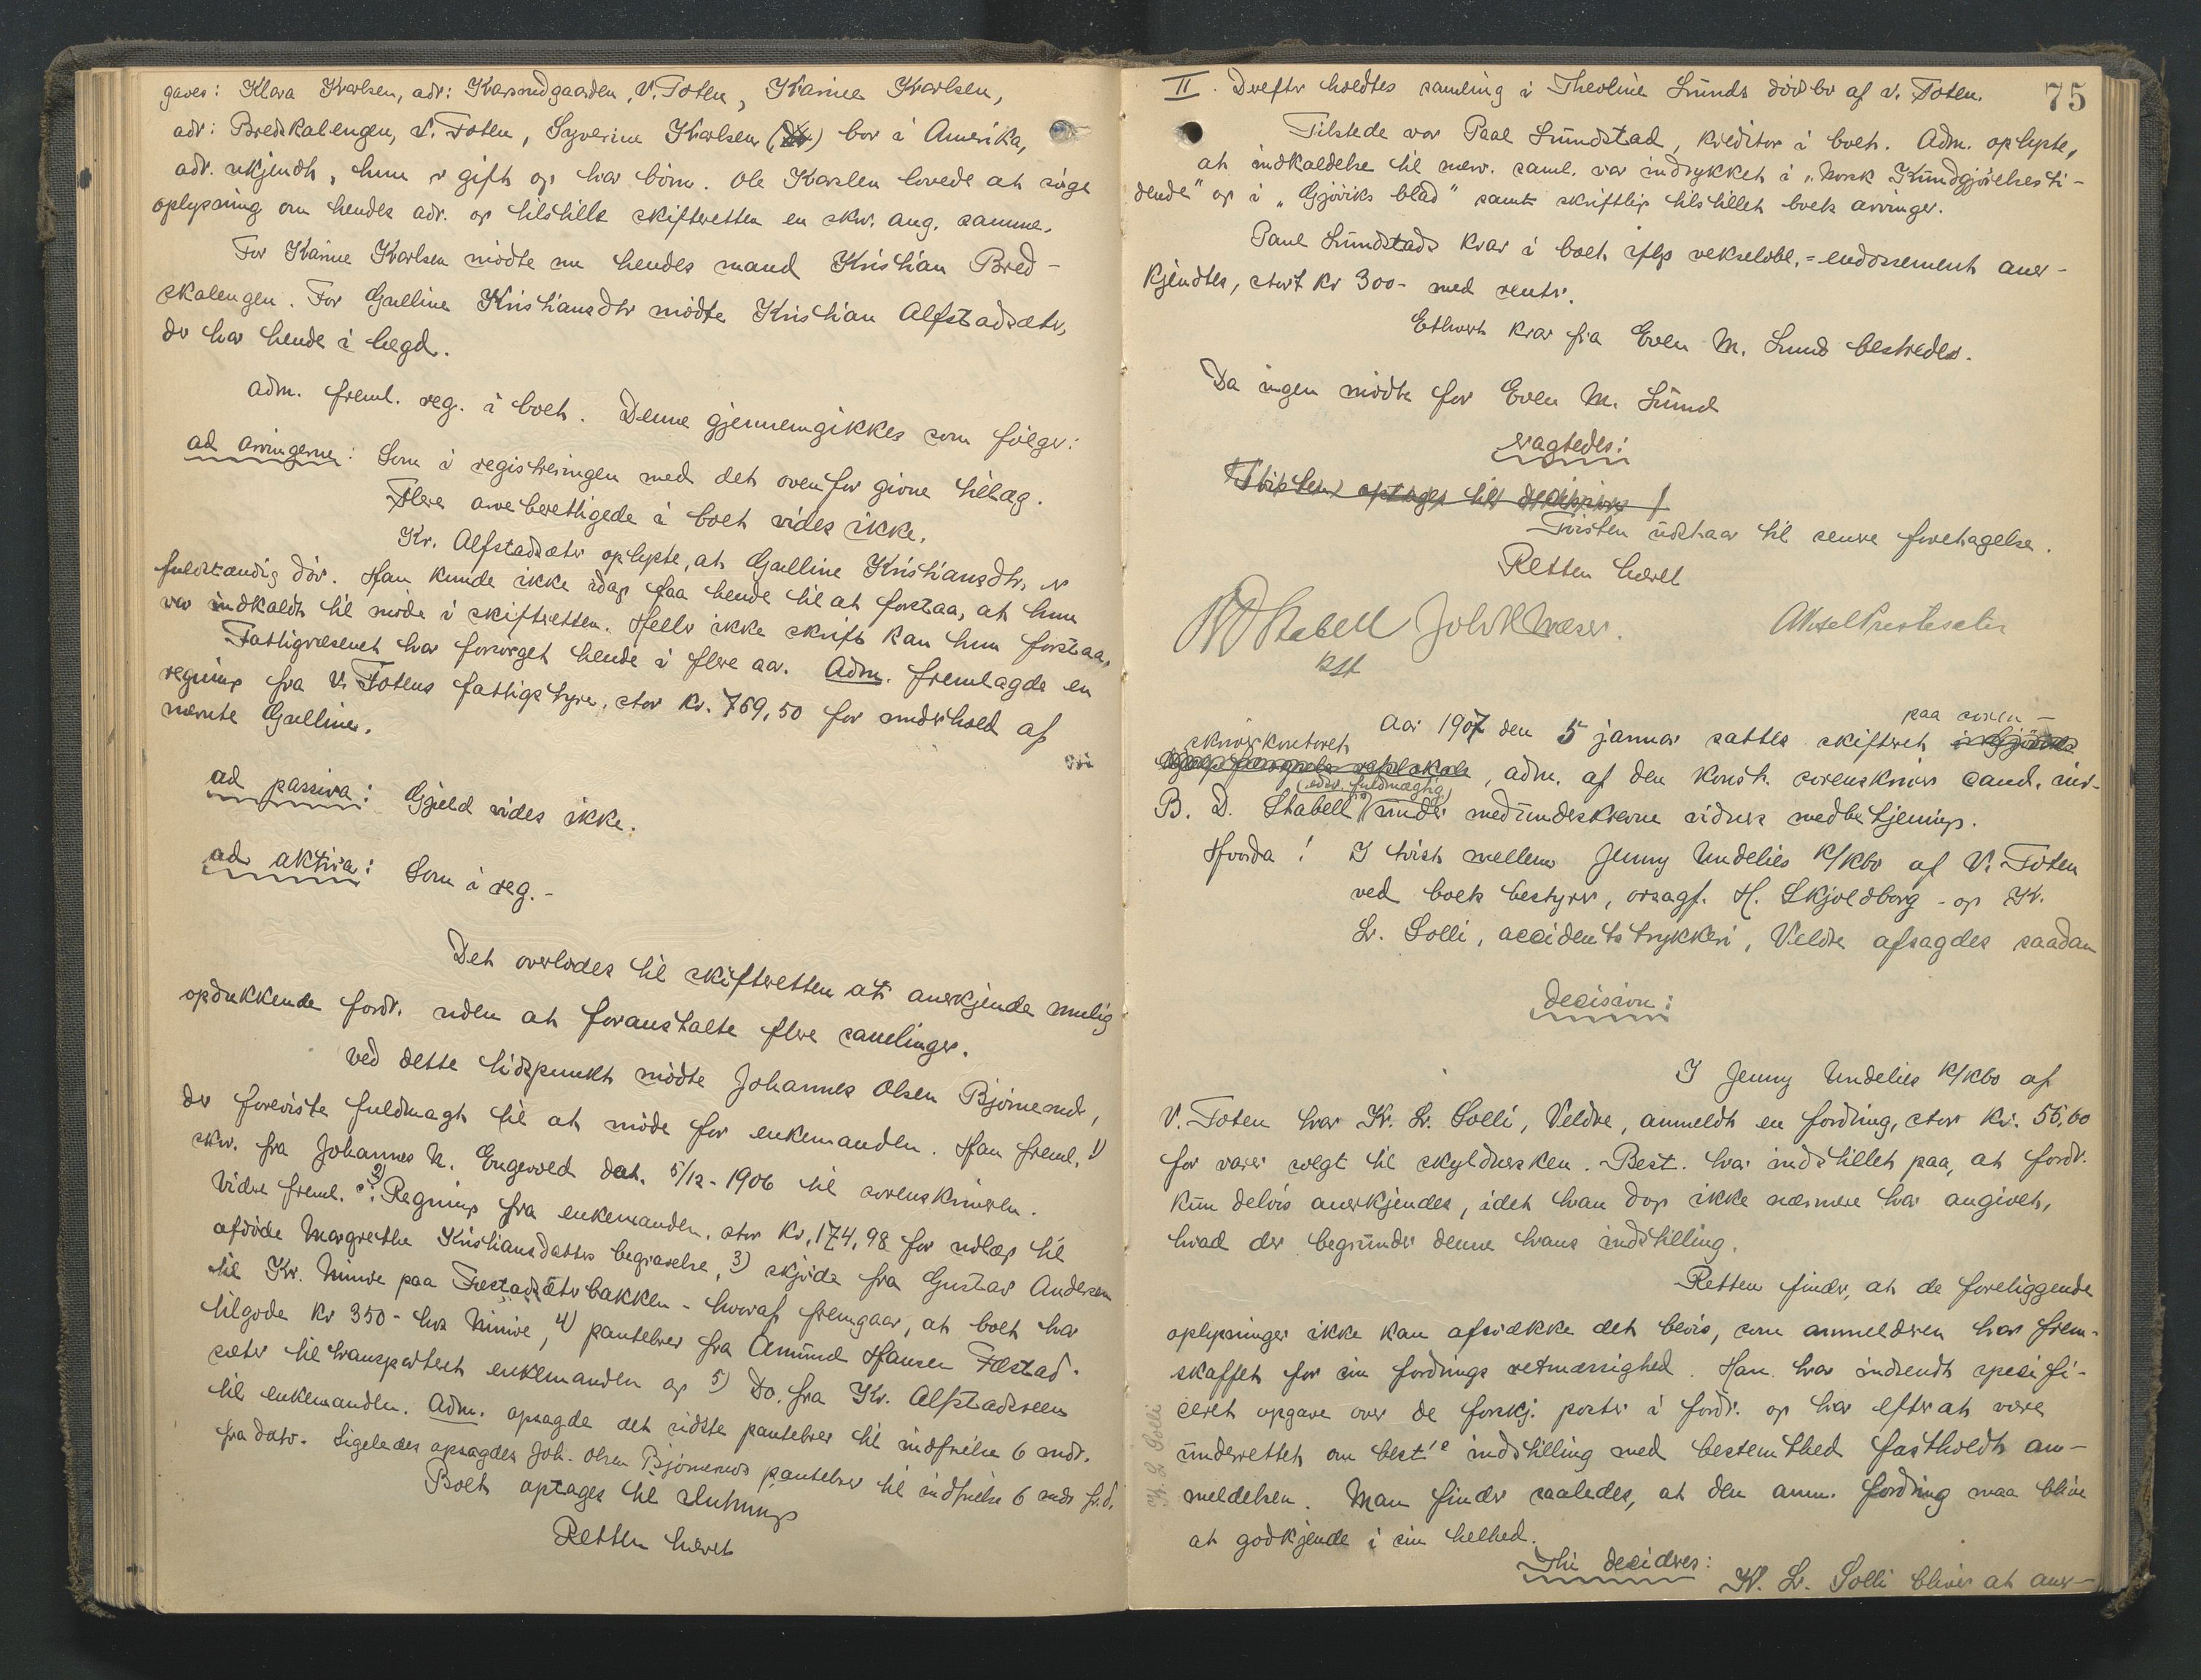 gaves: Klara Karlsen, adr: Karsrudgaarden, V. Toten, Karine Karlsen,
adr: Bredskalengen, V. Toten, Syverine Karlsen bor i Amerika,
adr. ukjendt, hun er gift og har börn. Ole Karlsen lovede at söge
oplysning om hendes adr. og tilstille skifteretten en skr. ang. samme.
For Karine Karlsen mödte nu hendes mand Kristian Bred-
skalengen. For Gulline Kristiansdtr mödte Kristian Alfstadsæter,
der har hende i lægd.
Adm. freml. reg. i boet. Denne gjennemgikkes som fölger:
ad arvingerne: Som i registreringen med det ovenfor givne tillæg.
Flere arveberettigede i boet vides ikke.
Kr. Alfstadsæter oplyste, at Gulline Kristiansdtr. er
fuldstændig döv. Han kunde ikke idag faa hende til at forstaa, at hun
var indkaldt til möde i skifteretten. Heller ikke skrift kan hun forstaa.
Fattigvæsenet har forsörget hende i flere aar. Adm. fremlagde en
regning fra V. Totens fattigstyre, stor kr. 769,50 for underhold af
nævnte Gulline.
ad passiva: Gjæld vides ikke.
ad aktiva: Som i reg.-
Det overlodes til skifteretten at anerkjende mulig
opdukkende fordr. uden at foranstalte flere samlinger.
Ved dette tidspunkt mödte Johannes Olsen Bjørnerud,
der foreviste fuldmagt til at möde for enkemanden. Han freml. 1)
skr. fra Johannes N. Engevold dat. 5/12-1906 til sorenskriveren.
Videre freml. 2) Regning fra enkemanden, stor kr. 174,98 for udlæg til
afdöde Margrethe Kristiansdatters begravelse, 3) skjöde fra Gustav Andersen
til Kr. Ninive paa Fæstadsæterbakken - hvoraf fremgaar, at boet har
tilgode kr 350- hos Ninive, 4) pantebrev fra Amund Hansen Fæstad-
sæter til transporteret enkemanden og 5) Do. fra Kr. Alfstadsveen
til enkemanden. Adm. opsagde det sidste pantebrev til indfrielse 6 mdr.
fra dato. Ligeledes opsagdes Joh. Olsen Bjørneruds pantebrev til indfrielse 6 mdr fr. d.
Boet optages til slutning
Retten hævet
75
II. Derefter holdtes samling i Theoline Lunds dödsbo af V. Toten.
Tilstede var Paul Sundstad, kreditor i boet. Adm. oplyste,
at indkaldelse til nærv. saml. var indrykket i „Norsk Kundgjörelsesti-
dende" og i „Gjöviks blad" samt skriftlig tilstillet boets arvinger.
Paul Sundstads krav i boet iflg vekselobl. = endossement aner-
kjendtes, stort kr 300- med renter.
Ethvert krav fra Even M. Lund bestrides.
Da ingen mödte for Even M. Lund
eragtedes:
Tvisten optages til decision!
Tvisten udstaar til senere foretagelse.
Retten hævet
B D Stabell
kst
Aar 1907 den 5 januar sattes skifteret paa soren-
skriverkontoret, adm. af den konst. sorenskriver cand. jur.
B. D. Stabell (edsv. fuldmægtig) under medunderskrevne vidners medbetjening.
Hvorda! I tvist mellem Jenny Undelies k/kbo af V. Toten
ved boets bestyrer, orsagf. H. Skjoldborg - og Kr.
Lr. Solli, accidentstrykkeri, Veldre afsagdes saadan
decision:
I Jenny Undelies k/kbo af
V. Toten har Kr. Lr. Solli, Veldre, anmeldt en fordring, stor kr. 55,60
for varer solgt til skyldnersken. Best. har indstillet paa, at fordr.
kun delvis anerkjendes, idet han dog ikke nærmere har angivet,
hvad der begrunder denne hans indstilling.
Retten finder, at de foreliggende
oplysninger ikke kan afsvække det bevis, som anmelderen har frem-
skaffet for sin fordrings retmæssighed. Han har indsendt spesifi-
ceret opgave over de forskj. poster i fordr. og har efter at være
underrettet om best's indstilling med bestemthed fastholdt an-
meldelsen. Man finder saaledes, at den anm. fordring maa blive
at godkjende i sin helhed.
Thi decideres:
Kr. Lr. Solli bliver at aner-
Kr. L. Solli